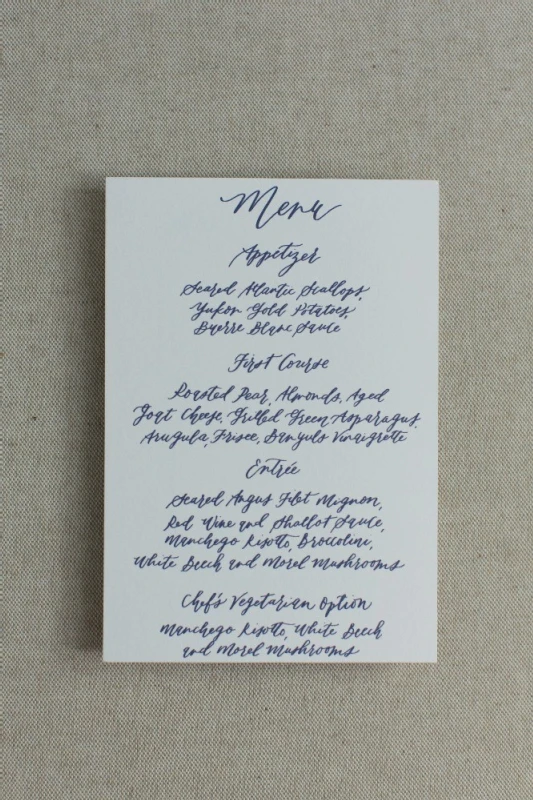 Menu
Appetizer
Seared Atlantic Scallops,
Yukon Gold Potatoes,
Buerre Blanc Sauce
First Course
Roasted Pear, Almonds, Aged
Goat Cheese, Grilled Green Asparagus,
Arugula, Frisee, Banyuls Vinaigrette
Entrée
Seared Angus Filet Mignon,
Red Wine and Shallot Sauce,
Manchego Risotto, Broccolini,
White Beech and Morel Mushrooms
Chef's Vegetarian Option
Manchego Risotto, White Beech
and Morel Mushrooms